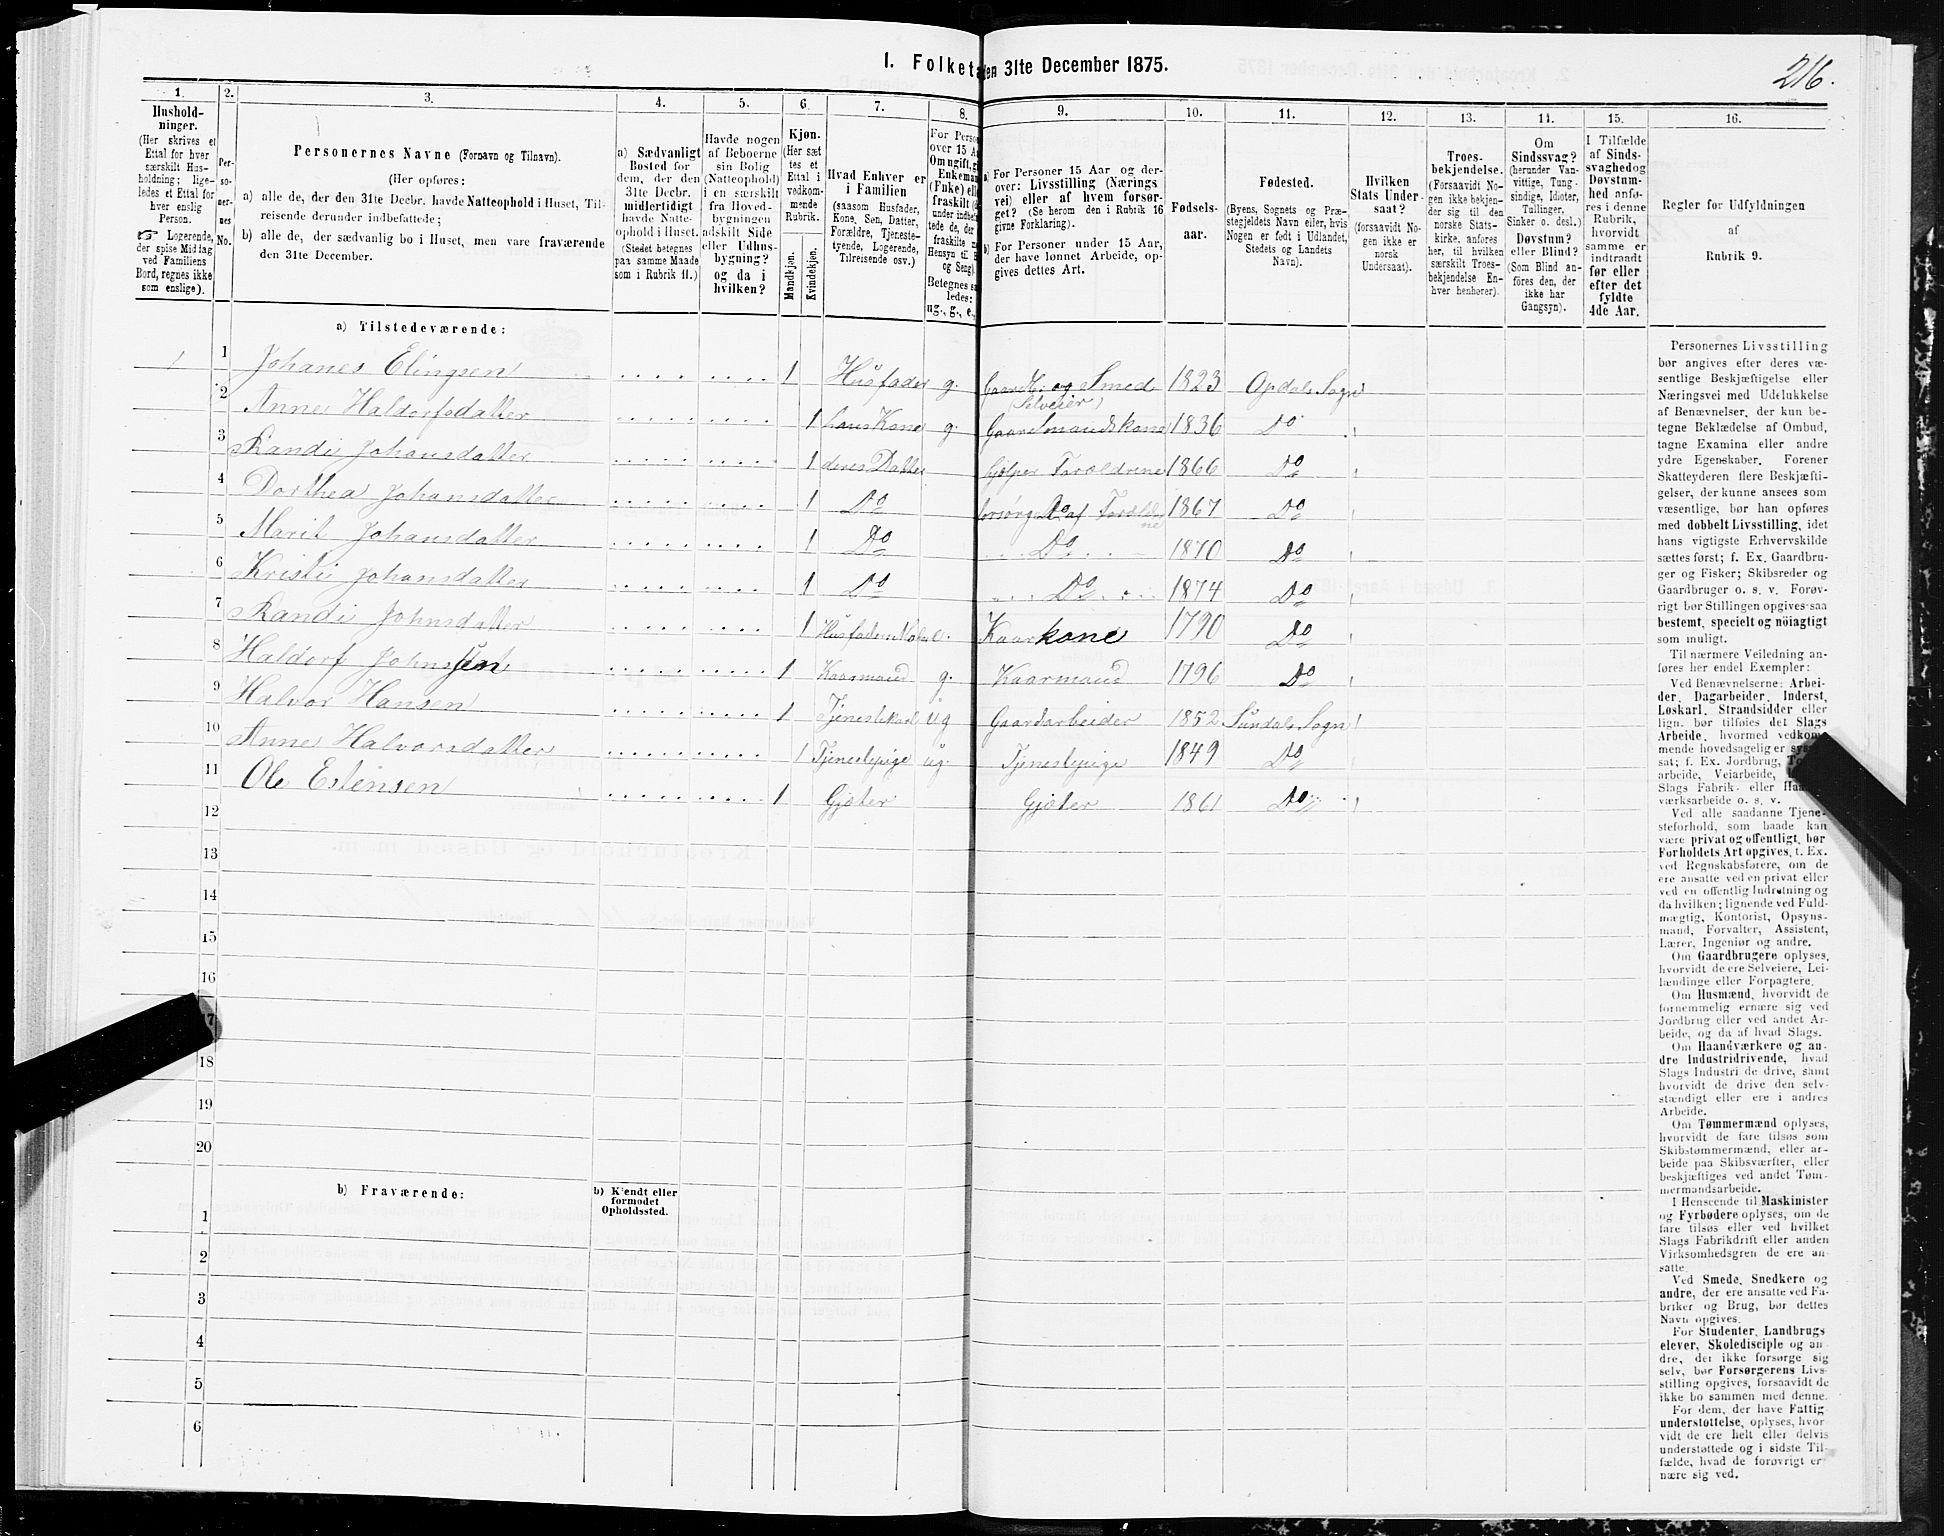 216.
I. Folketa
den 31te December 1875.
1. 2. 3. 4. 5. 6. 7. 8. 9. 10. 11. 12. 13. 14. 15. 16.
Hushold-
ninger.
(Her skrives et
Ettal for hver
særskilt Hus-
holdning; lige-
ledes et Ettal for
hver enslig
Person.
☞ Logerende,
der spise Middag
ved Familiens
Bord, regnes ikke
som enslige).
Per-
so-
ner-
nes
No.
Personernes Navne (Fornavn og Tilnavn).
(Her opføres:
a) alle de, der den 31te Decbr. havde Natteophold i Huset, Til-
reisende derunder indbefattede;
b) alle de, der sædvanlig bo i Huset, men vare fraværende
den 31te December.
a) Sædvanligt
Bosted for
dem, der den
31te Decbr.
midlertidigt
havde Natte-
ophold i Huset.
(Stedet betegnes
paa samme Maade
som i Rubrik 11.)
Havde nogen
af Beboerne
sin Bolig
(Natteophold)
i en særskilt
fra Hoved-
bygningen
adskilt Side
eller Udhus-
bygning?
og da i
hvilken?
Kjøn.
(Her sæt
tes et
Ettal i
vedkom-
mende
Rubrik.
Mandkjøn.
Kvindekjøn.
Hvad Enhver er
i Familien
(saasom Husfader,
Kone, Søn, Datter,
Forældre, Tjeneste-
tyende, Logerende,
Tilreisende osv.)
For Perso
over 15 A
Om ugift, gi
Enkeman
(Enke) ell
fraskilt (
under indbef
tede de, der
fraskilte
Hensyn til B
og Seng).
Betegnes sa
ledes:
ug., g., e.,
a) For Personer 15 Aar og der-
over: Livsstilling (Nærings
vei) eller af hvem forsør-
get? (Se herom den i Rubrik 16
givne Forklaring).
b) For Personer under 15 Aar,
der have lønnet Arbeide, op-
gives dettes Art.
Fødsels-
aar.
Fødested.
(Byens, Sognets og Præ-
stegjeldets Navn eller, hvis
Nogen er født i Udlandet,
Stedets og Landets
Navn).
Hvilken
Stats Under-
saat?
(forsaavidt No-
gen ikke er
norsk
Undersaat).
Troes-
bekjendelse.
(Forsaavidt No-
gen ikke bekjen-
der sig til den
norske Stats-
kirke, anføres
her, til hvilken
særskilt Troes-
bekjendelse En-
hver henhører).
Om
Sindssvag?
(herunder Van-
vittige, Tung-
sindige, Idioter,
Tullinger,
Sinker o. desl.)
Døvstum?
eller Blind?
(Som Blind an-
føres den, der
ikke har
Gangsyn).
I Tilfælde
af Sinds-
svaghed og
Døvstum-
hed anfø-
res i denne
Rubrik,
hvorvidt
samme er
indtraadt
før eller
efter det
fyldte
4de Aar.
Regler for Udfyldningen
af
Rubrik 9.
a) Tilstedeværende:
1 1 Johanes Elingsen 1 Husfader g. Gaardb. og Smed 1823 Opdals Sogn
(Selveier)
2 Anne Haldorsdatter 1 hans Kone g. Gaardmandskone 1836 Do
3 Randi Johansdatter 1 deres Datter hjelper Forældrene 1866 Do
4 Dorthea Johansdatter 1 Do forsørges af Forældrene 1867 Do
5 Marit Johansdatter 1 Do Do 1870 Do
6 Kristi Johansdatter 1 Do Do 1874 Do
7 Randi Johnsdatter 1 Husfaderens Kaarkone 1790 Do
8 Haldorf Johnsen 1 Kaarmand g. Kaarmand 1796 Do
9 Halvor Hansen 1 Tjenestekarl ug Gaardarbeider 1852 Sundals Sogn
10 Anne Halvorsdatter 1 Tjenestepige ug. Tjenestepige 1849 Do
11 Ole Estensen 1 Gjæter Gjæter 1861 Do
12
13
14
15
16
7
18
19
20
b) Fraværende:
b) Kjendt eller
formodet
Opholdssted.
1
2
3
4
5
6
Personernes Livsstilling
bør angives efter deres væ-
sentlige Beskjæftigelse eller
Næringsvei med Udelukkelse
af Benævnelser, der kun be-
tegne Beklædelse af Ombud,
tagne Examina eller andre
ydre Egenskaber. Forener
Skatteyderen flere Beskjæfti-
gelser, der kunne ansees som
væsentlige, bør han opføres
med dobbelt Livsstilling, idet
hans vigtigste Erhvervskilde
sættes først; f. Ex. Gaardbru-
ger og Fisker; Skibsreder og
Gaardbruger o. s. v. Forøv-
rigt bør Stillingen opgives saa
bestemt, specielt og nöiagtigt
som muligt.
Til nærmere Veiledning an-
føres her endel Exempler:
Ved Benævnelserne: Arbei-
der, Dagarbeider, Inderst,
Løskarl, Strandsidder eller
lign. bør tilføies det Slags
Arbeide, hvormed vedkom-
mende hovedsagelig er syssel
sat; f. Ex. Jordbrug, To
arbeide, Veiarbeide,
Slags Fabrik- eller Haand
værksarbeide o. s. v.
Ved alle saadanne Tjene-
steforhold, som baade kan
være privat og offentligt, bør
Forholdets Art opgives, t. Ex.
ved Regnskabsførere, om de
ere ansatte ved en privat eller
ved en offentlig Indretning og
da hvilken; lignende ved Fuld-
mægtig, Kontorist, Opsyns-
mand, Forvalter, Assistent,
Lærer, Ingeniør og andre.
Om Gaardbrugere oplyses,
hvorvidt de ere Selveiere, Lei-
lændinge eller Forpagtere.
Om Husmænd, hvorvidt de
fornemmelig ernære sig ved
Jordbrug eller ved andet Ar-
beide, og da af hvad Slags.
Om Haandværkere og an-
dre Industridrivende, hvad
Slags Industri de drive, samt
hvorvidt de drive den selv-
stændigt eller ere i andres
Arbeide.
Om Tømmermænd oplyses,
hvorvidt de fare tilsøs som
Skibstømmermænd, eller ar-
beide paa Skibsværfter, eller
beskjæftiges ved andet Tøm-
mermandsarbeide.
I Henseende til Maskinister
og Fyrbødere oplyses, om de
fare tilsøs eller ved hvilket
Slags Fabrikdrift eller anden
Virksomhedsgren de ere an-
satte.
Ved Smede, Snedkere og
andre, der ere ansatte ved Fa-
briker og Brug, bør dettes
Navn opgives.
For Studenter, Landbrugs
elever, Skoledisciple og an-
dre, der ikke forsørge sig
selv, bør Forsørgerens Livs-
stilling opgives, forsaavidt de
ikke bo sammen med denne.
For dem, der have Fattig
understøttelse, oplyses, hvor-
vidt de ere helt eller delvis
understøttede og i sidste Til-
fælde, hvad de forøvrigt er
nære sig ved.